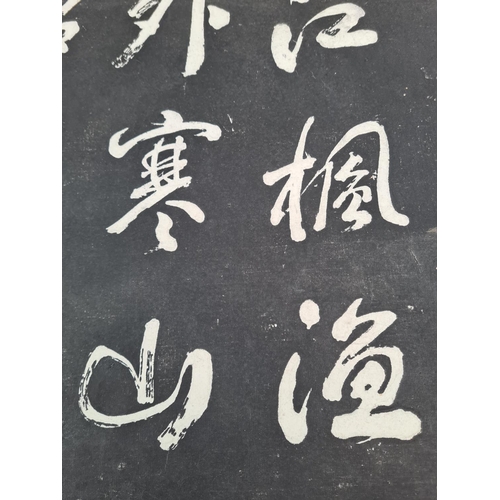 江楓渔
外寒山